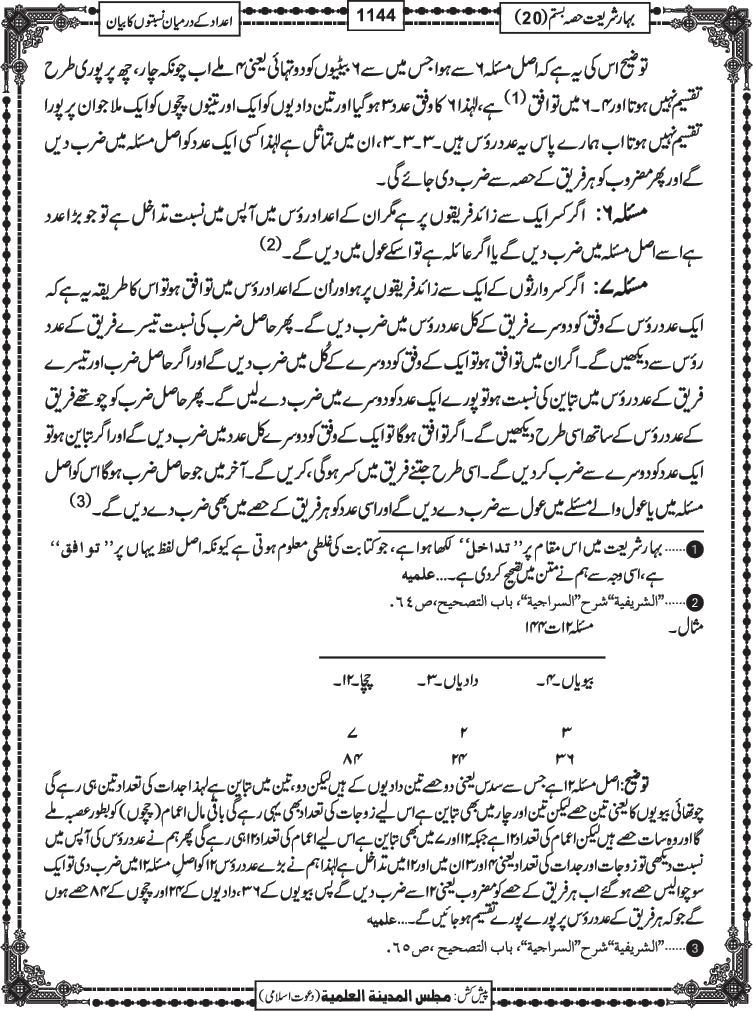 بہارِ شریعت حصہ بستم (20)
1144
اعداد کے درمیان نسبتوں کا بیان
توضیح اس کی یہ ہے کہ اصل مسئلہ ۶ سے ہوا جس میں سے ۶ بیٹیوں کو دو تہائی یعنی ۴ ملے اب چونکہ چار، چھ پر پوری طرح
تقسیم نہیں ہوتا اور ۴۔۶ میں توافق (1) ہے، لہٰذا ۶ کا وفق عدد ۳ ہوگیا اور تین دادیوں کو ایک اور تینوں چچوں کو ایک ملا جو ان پر پورا
تقسیم نہیں ہوتا اب ہمارے پاس یہ عدد رؤس ہیں ۔۳۔۳۔۳، ان میں تماثل ہے لہٰذا کسی ایک عدد کو اصل مسئلہ میں ضرب دیں
گے اور پھر مضروب کو ہر فریق کے حصہ سے ضرب دی جائے گی۔
مسئلہ ۶: اگر کسر ایک سے زائد فریقوں پر ہے مگر ان کے اعداد رؤس میں آپس میں نسبت تداخل ہے تو جو بڑا عدد
ہے اسے اصل مسئلہ میں ضرب دیں گے یا اگر عائلہ ہے تو اسکے عول میں دیں گے۔ (2)
مسئلہ ۷: اگر کسر وارثوں کے ایک سے زائد فریقوں پر ہو اور اُن کے اعداد رؤس میں توافق ہو تو اس کا طریقہ یہ ہے کہ
ایک عدد رؤس کے وفق کو دوسرے فریق کے کل عدد رؤس میں ضرب دیں گے۔ پھر حاصل ضرب کی نسبت تیسرے فریق کے عدد
رؤس سے دیکھیں گے۔ اگر ان میں توافق ہو تو ایک کے وفق کو دوسرے کے کُل میں ضرب دیں گے اور اگر حاصل ضرب اور تیسرے
فریق کے عدد رؤس میں تباین کی نسبت ہو تو پورے ایک عدد کو دوسرے میں ضرب دے لیں گے۔ پھر حاصل ضرب کو چوتھے فریق
کے عدد رؤس کے ساتھ اسی طرح دیکھیں گے۔ اگر توافق ہوگا تو ایک کے وفق کو دوسرے کل عدد میں ضرب دیں گے اور اگر تباین ہو تو
ایک عدد کو دوسرے سے ضرب کر دیں گے۔ اسی طرح جتنے فریق میں کسر ہو گی، کریں گے۔ آخر میں جو حاصل ضرب ہوگا اس کو اصل
مسئلہ میں یا عول والے مسئلے میں عول سے ضرب دے دیں گے اور اسی عدد کو ہر فریق کے حصے میں بھی ضرب دے دیں گے۔ (3)
1 ......بہار شریعت میں اس مقام پر ’’تداخل‘‘ لکھا ہوا ہے، جو کتابت کی غلطی معلوم ہوتی ہے کیونکہ اصل لفظ یہاں پر ’’توافق‘‘
ہے، اسی وجہ سے ہم نے متن میں تصحیح کر دی ہے۔...علمیه
2 ......"الشريفية" شرح "السراجية"، باب التصحيح، ص٦٤.
مثال۔ مسئلہ ۱۲ ت ۱۴۴
بیویاں۔۴۔ دادیاں۔۳۔ چچا۔۱۲۔
۳ ۲ ۷
۳۶ ۲۴ ۸۴
توضیح: اصل مسئلہ ۱۲ ہے جس سے سدس یعنی دو حصے تین دادیوں کے ہیں لیکن دو، تین میں تباین ہے لہٰذا جدات کی تعداد تین ہی رہے گی
چوتھائی بیویوں کا یعنی تین حصے لیکن تین اور چار میں بھی تباین ہے اس لیے زوجات کی تعداد بھی یہی رہے گی باقی مال اعمام (چچوں) کو بطور عصبہ ملے
گا اور وہ سات حصے ہیں لیکن اعمام کی تعداد ۱۲ ہے جبکہ ۱۲ اور ۷ میں بھی تباین ہے اس لیے اعمام کی تعداد ۱۲ ہی رہے گی پھر ہم نے عدد رؤس کی آپس میں
نسبت دیکھی تو زوجات اور جدات کی تعداد یعنی ۴ اور ۳ ان میں اور ۱۲ میں تداخل ہے لہٰذا ہم نے بڑے عدد رؤس ۱۲ کو اصلِ مسئلہ ۱۲ میں ضرب دی تو ایک
سو چوالیس حصے ہوگئے اب ہر فریق کے حصے کو مضروب یعنی ۱۲ سے ضرب دیں گے پس بیویوں کے ۳۶، دادیوں کے ۲۴ اور چچوں کے ۸۴ حصے ہوں
گے جو کہ ہر فریق کے عدد رؤس پر پورے پورے تقسیم ہوجائیں گے۔...علمیه
3 ......"الشريفية" شرح "السراجية"، باب التصحيح ،ص٦٥.
پیش کش: مجلس المدینة العلمیة (دعوت اسلامی)